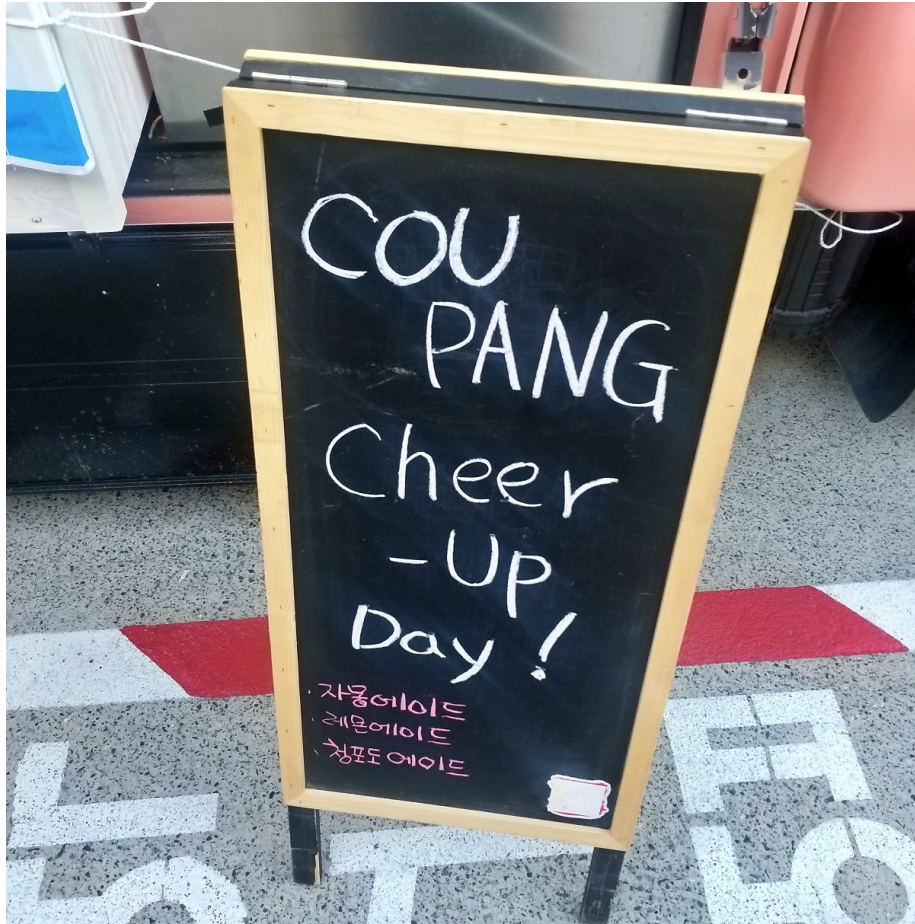 COU
PANG
Cheer
-Up
Day!
· 자몽에이드
· 레몬에이드
· 청포도 에이드